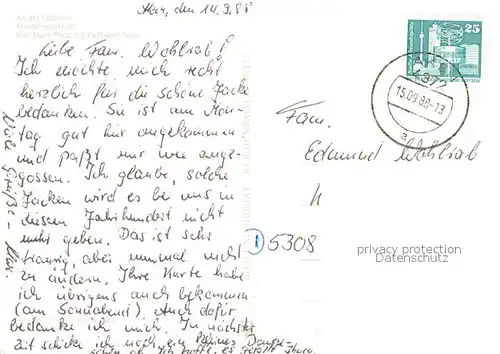 Aken, den 14.9.88
Liebe Fam. Wohlrab!
Ich möchte mich recht
herzlich für die schöne Jacke
bedanken. Sie ist am Mon-
tag gut hier angekommen
und paßt mir wie ange-
gossen. Ich glaube, solche
Jacken wird es bei uns in
diesem Jahrhundert nicht
mehr geben. Das ist sehr
traurig, aber nunmal nicht
zu ändern. Ihre Karte habe
ich übrigens auch bekommen
(am Sonnabend). Auch dafür
bedanke ich mich. In nächster
Zeit schicke ich noch ein kleines
schön ab. Ich hoffe, es gefällt Ihnen.
Viele Grüße
Karl-Marx-Platz mit
25
AKEN
4372
15.09.88-13
Fam.
Edmund Wohlrab
D 5308
privacy protection
Datenschutz